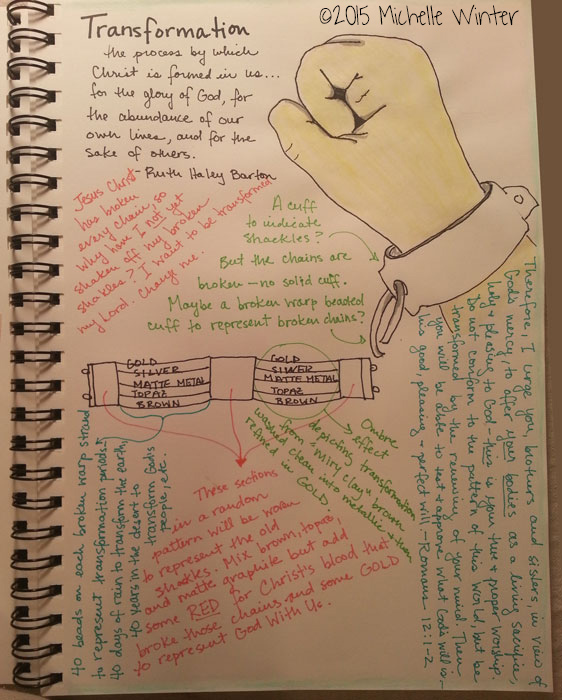 ©2015 Michelle Winter
Transformation
the process by which
Christ is formed in us...
for the glory of God, for
the abundance of our
own lives, and for the
sake of others.
- Ruth Haley Barton
Jesus Christ
has broken
every chain, so
why have I not yet
shaken off my broken
shakles? I want to be transformed
my Lord. Change me.
A cuff
to indicate
shackles?
But the chains are
broken - no solid cuff.
Maybe a broken warp beaded
cuff to represent broken chains?
GOLD
SILVER
MATTE METAL
TOPAZ
BROWN
GOLD
SILVER
MATTE METAL
TOPAZ
BROWN
Ombre
effect
depicting transformation
from miry clay, brown
washed clean into metallic + then
refined in GOLD.
These sections
in a random
pattern will be worn
to represent the old
shackles. Mix brown, topaz,
and matte graphite but add
some RED for Christ's blood that
broke those chains and some GOLD
to represent God With Us.
40 beads on each broken warp strand
to represent transformation periods:
40 days of rain to transform the earth,
40 years in the desert to
transform God's
people, etc.
Therefore, I urge you, brothers and sisters, in view of
God's mercy to offer your bodies as a living sacrifice,
holy + pleasing to God - this is your true + proper worship.
Do not conform to the pattern of this world, but be
transformed by the renewing of your mind. Then
you will be able to test + approve what God's will is -
his good, pleasing + perfect will. - Romans 12:1-2